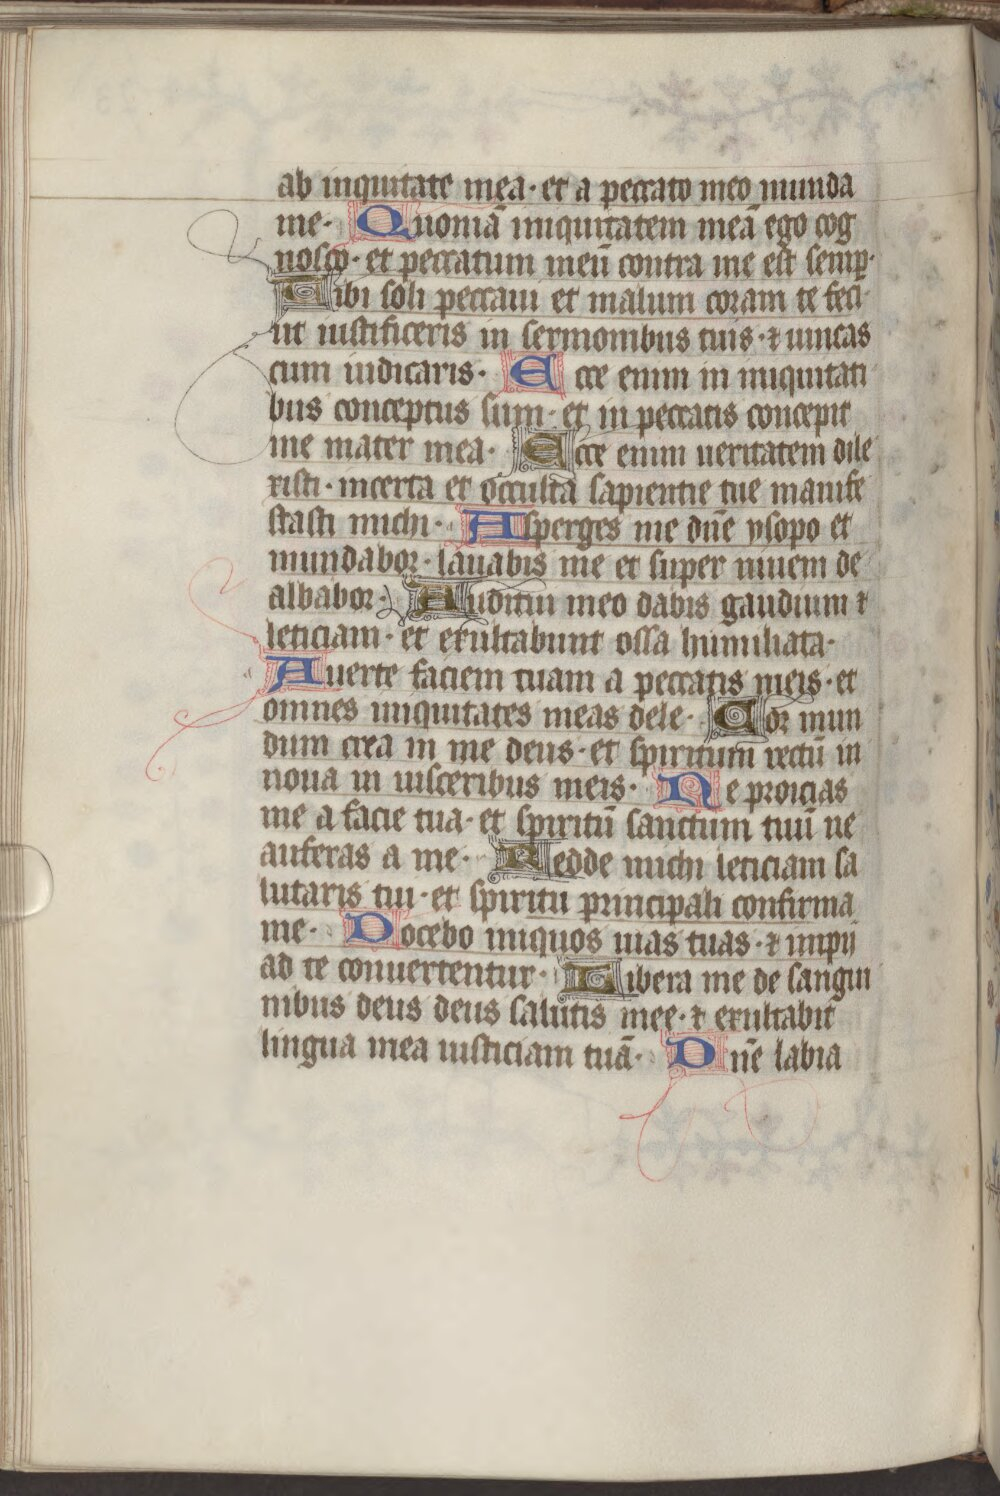 ab iniquitate mea· et a peccato meo munda
me· Quoniā iniquitatem meā ego cog
nosco· et peccatum meū contra me est semp̄·
Tibi soli peccaui et malum coram te feci·
ut iustificeris in sermonibus tuis· ⁊ uincas
cum iudicaris· Ecce enim in iniquitati
bus conceptus sum· et in peccatis concepit
me mater mea· Ecce enim ueritatem dile
xisti· incerta et occulta sapientie tue manife
stasti michi· Asperges me dn̄e ysopo et
mundabor· lauabis me et super niuem de
albabor· Auditui meo dabis gaudium ⁊
leticiam· et exultabunt ossa humiliata·
Auerte faciem tuam a peccatis meis· et
omnes iniquitates meas dele· Cor mun
dum crea in me deus· et spiritum rectū in
noua in uisceribus meis· Ne proicias
me a facie tua· et spiritū sanctum tuū ne
auferas a me· Redde michi leticiam sa
lutaris tui· et spiritu principali confirma
me· Docebo iniquos uias tuas· ⁊ impij
ad te conuertentur· Libera me de sangui
nibus deus deus salutis mee· ⁊ exultabit
lingua mea iusticiam tuā· Dn̄e labia